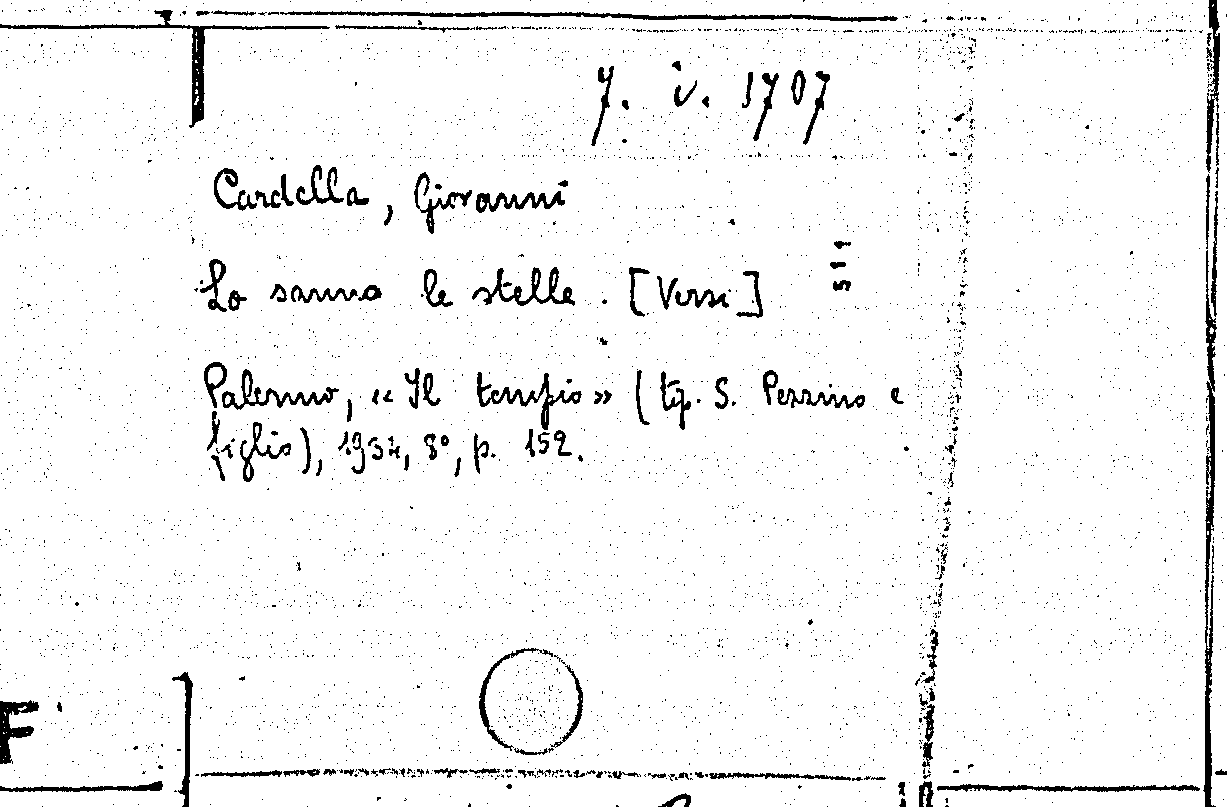 7. i. 1707
Cardella, Giovanni
Lo sanno le stelle. [Versi]
511
Palermo, «Il tempio» (tip. S. Pezzino e
figlio), 1934, 8°, p. 152.
F